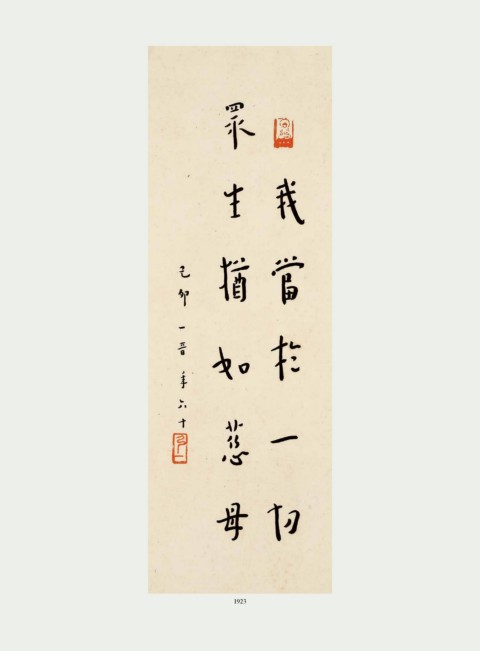 我當於一切
眾生猶如慈母
己卯一音年六十
1923